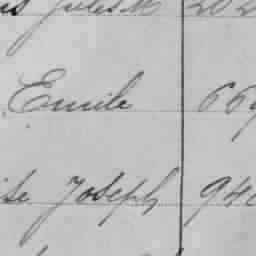 Jules M 202
Emile 669
ise Joseph 940